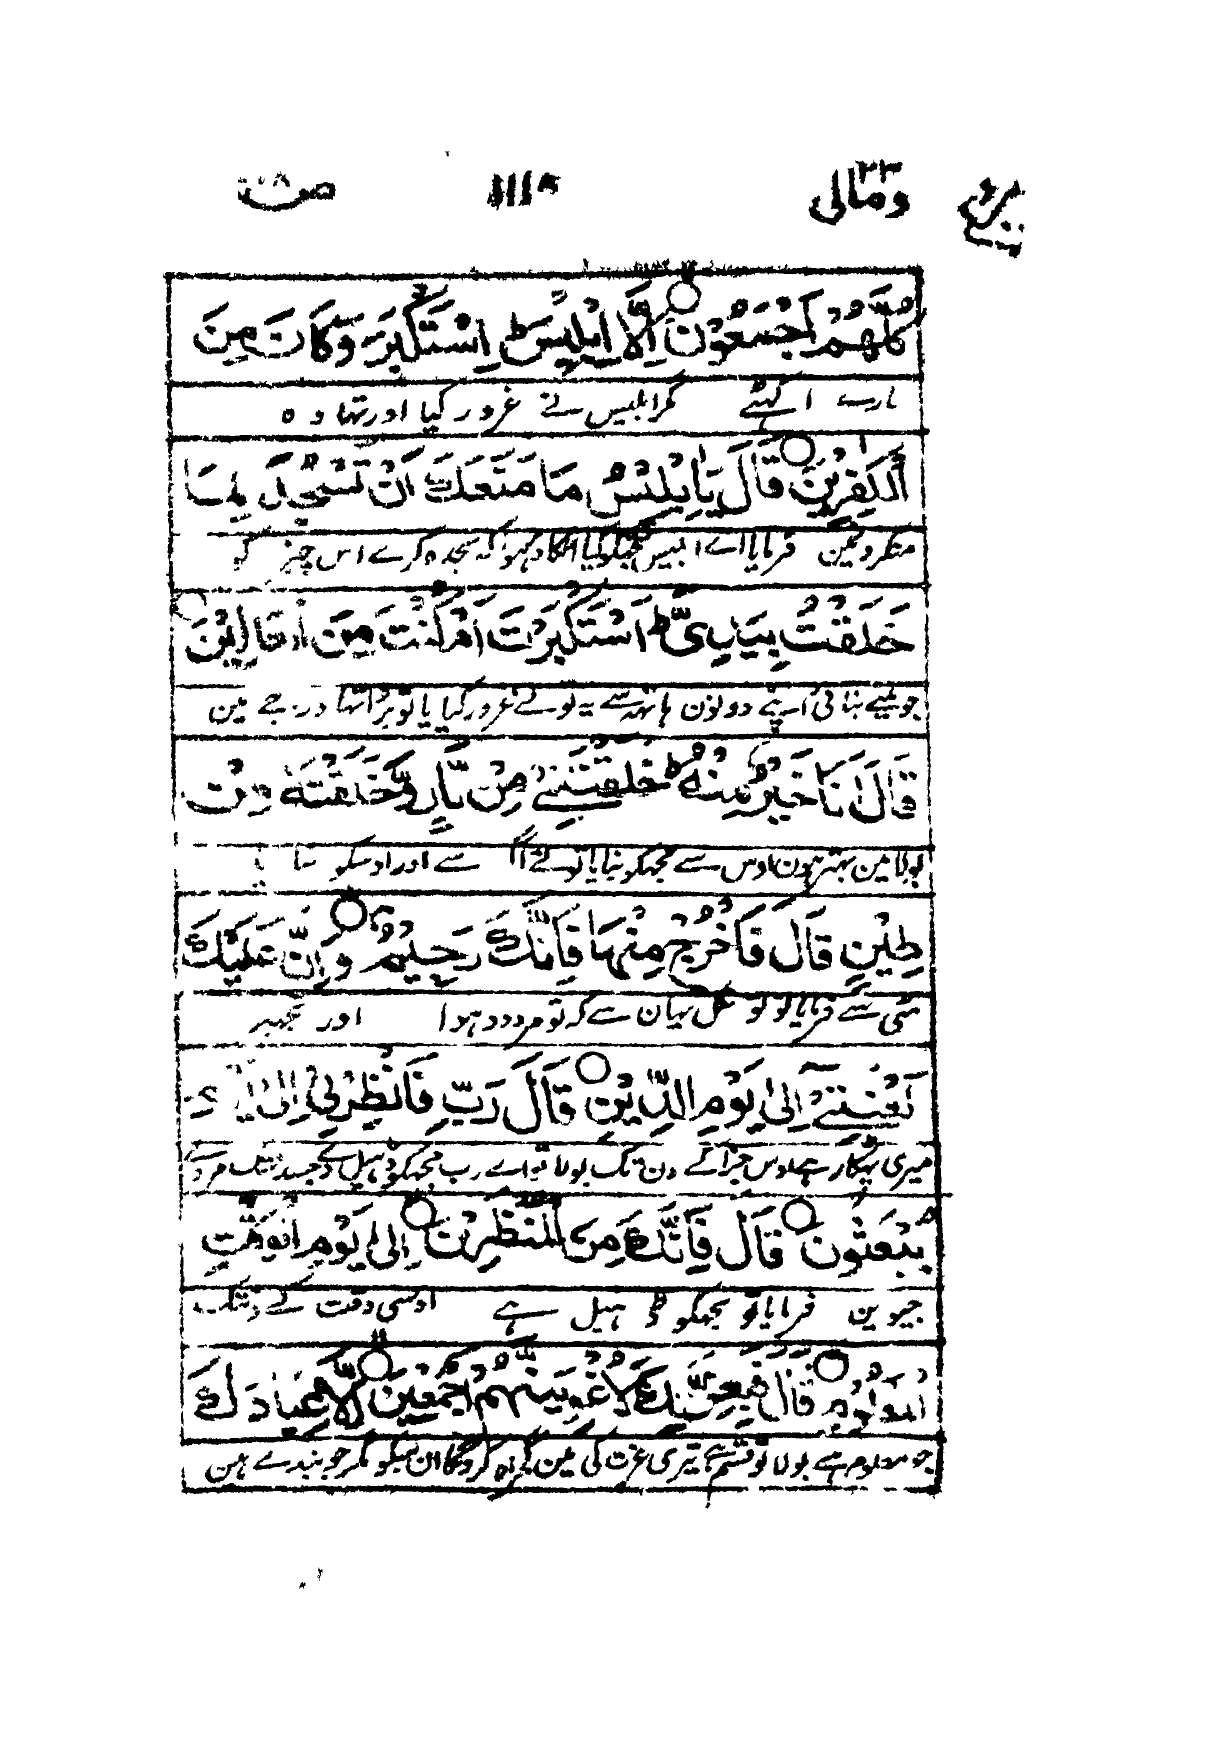 ومالی ٢٣
ص
كُلُّهُمْ اَجْمَعُوْنَ اِلَّا اِبْلِيْسَ ط اِسْتَكْبَرَ وَكَانَ مِنَ
سارے اکہٹے مگر ابلیس نے غرور کیا اور تہا وہ
الْكٰفِرِيْنَ قَالَ يٰاِبْلِيْسُ مَا مَنَعَكَ اَنْ تَسْجُدَ لِمَا
منکروں مین فرمایا اے ابلیس تجہکو کیا اٹکاو ہوا کہ سجدہ کرے اس چیز کو
خَلَقْتُ بِيَدَيَّ ط اَسْتَكْبَرْتَ اَمْ كُنْتَ مِنَ الْعَالِيْنَ
جو مینے بنائی اپنے دونون ہاتہہ سے یہ تو نے غرور کیا یا تو بڑا تہا درجے مین
قَالَ اَنَا خَيْرٌ مِنْهُ ط خَلَقْتَنِيْ مِنْ نَّارٍ وَّخَلَقْتَهُ مِنْ
بولا مین بہتر ہون اوس سے مجہکو بنایا تو نے آگ سے اور اوسکو بنایا
طِيْنٍ قَالَ فَاخْرُجْ مِنْهَا فَاِنَّكَ رَجِيْمٌ وَاِنَّ عَلَيْكَ
مٹی سے فرمایا تو تو نکل یہان سے کہ تو مردود ہوا اور تجہپر
لَعْنَتِيْٓ اِلٰى يَوْمِ الدِّيْنِ قَالَ رَبِّ فَاَنْظِرْنِيْ اِلٰى يَوْمِ
میری پہٹکار ہے اوس جزا کے دن تک بولا تو اے رب مجہکو ڈہیل دے جسدن تک مردے
يُبْعَثُوْنَ قَالَ فَاِنَّكَ مِنَ الْمُنْظَرِيْنَ اِلٰى يَوْمِ الْوَقْتِ
جیوین فرمایا تو تجہکو ڈہیل ہے اوسی وقت کے دن تک
الْمَعْلُوْمِ قَالَ فَبِعِزَّتِكَ لَاُغْوِيَنَّهُمْ اَجْمَعِيْنَ اِلَّا عِبَادَكَ
جو معلوم ہے بولا تو قسم ہے تیری عزت کی مین گمراہ کرونگا ان سبکو مگر جو بندے ہین